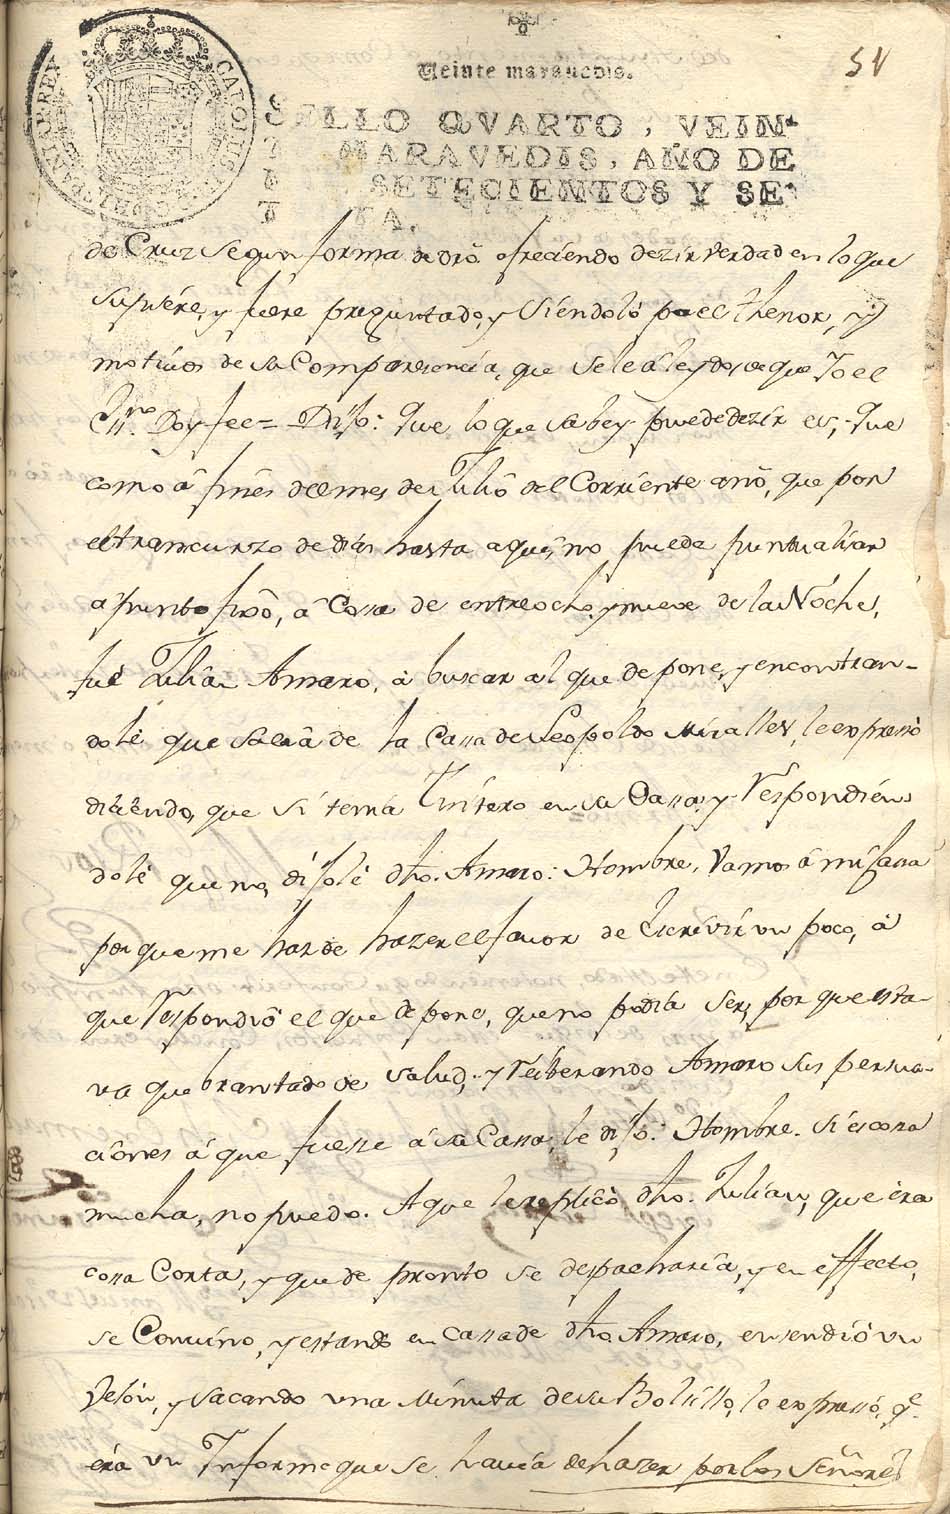 54
Veinte maravedis.
SELLO QVARTO, VEIN-
T MARAVEDIS, AÑO DE
SETECIENTOS Y SE-
T TA.
de Cruz segun forma de dro ofreciendo dezir verdad en lo que
supiére, y fuere preguntado, y siéndoló por el thenor, y
motivos de su Comparesencia, que se le á leydo, de que Yo el
Ssno. Doy fee = Dixo: Que lo que sabe y puede dezir es, que
como â fines del mes de Julio del Corriente año, que por
el transcurzo de dias hasta aqui, no puede puntualizar
a punto fixo, â Cosa de entre ocho, y nueve de la Noche,
fué Julian Amaro, â buscar al que depone, y encontran-
dolé que salia de la Cassa de Leopoldo Miralles, le expressó
diziendo, que si tenia Tintero en su Cassa, y Respondien-
dolé que no, dixolé dho. Amaro: Hombre, Vamos â mi Cassa
porque me haz de hazer el favor de Escrivir un poco, â
que Respondió el que depone, que no podia ser, por que esta-
va quebrantado de salud; y Reiterando Amaro sus persua-
ciones â que fuesse â su Cassa, le dixo: Hombre. Si es cossa
mucha, no puedo. A que le replicó dho. Julian, que éra
cossa Corta, y que de pronto se despacharia, y en éffecto,
se Convino, y estando en Cassa de dho Amaro, ensendió un
Velón, y sacando una Minuta de su Bolsillo, le expressó, qe.
éra un Informe que se havia de hazer por los Señores